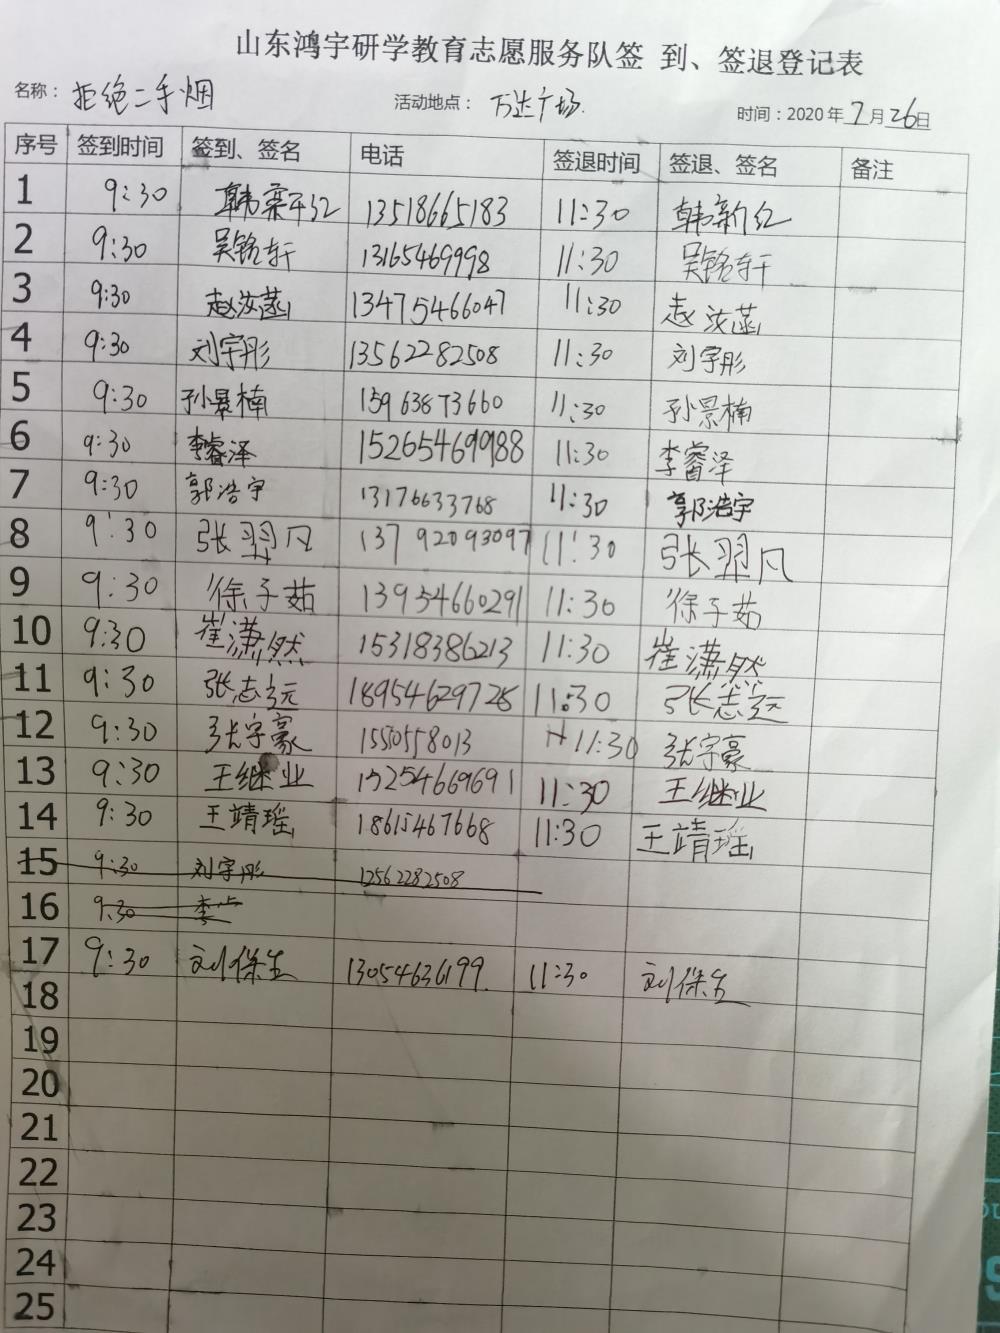 山东鸿宇研学教育志愿服务队签 到、签退登记表
名称： 拒绝二手烟 活动地点： 万达广场. 时间：2020年7月26日
序号 签到时间 签到、签名 电话 签退时间 签退、签名 备注
1 9:30 韩新红 13518665183 11:30 韩新红
2 9:30 吴铭轩 13165469998 11:30 吴铭轩
3 9:30 赵汝菡 13475466047 11:30 赵汝菡
4 9:30 刘宇彤 13562282508 11:30 刘宇彤
5 9:30 孙景楠 15963873660 11:30 孙景楠
6 9:30 李睿泽 15265469988 11:30 李睿泽
7 9:30 郭浩宇 13176633768 11:30 郭浩宇
8 9:30 张翌凡 13792093097 11:30 张翌凡
9 9:30 徐子茹 13954660291 11:30 徐子茹
10 9:30 崔潇然 15318386213 11:30 崔潇然
11 9:30 张志远 18954629728 11:30 张志远
12 9:30 张宇豪 1550558013 11:30 张宇豪
13 9:30 王继业 15254669691 11:30 王继业
14 9:30 王靖瑶 18615467668 11:30 王靖瑶
15 9:30 刘宇彤 12562282508
16 9:30 李
17 9:30 刘保生 13054636199. 11:30 刘保生
18
19
20
21
22
23
24
25